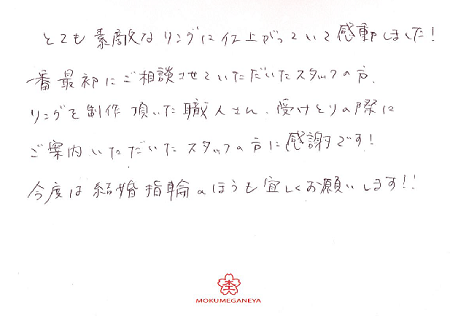 とても素敵なリングに仕上がっていて感動しました!
一番最初にご相談させていただいたスタッフの方、
リングを制作頂いた職人さん、受けとりの際に
ご案内いただいたスタッフの方に感謝です!
今度は結婚指輪のほうも宜しくお願いします!!
MOKUMEGANEYA